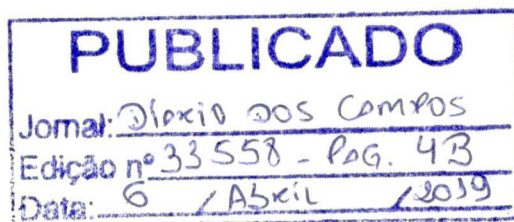 PUBLICADO
Jornal: Diário DOS CAMPOS
Edição nº 33558 - PÁG. 4B
Data: 6 / Abril / 2019